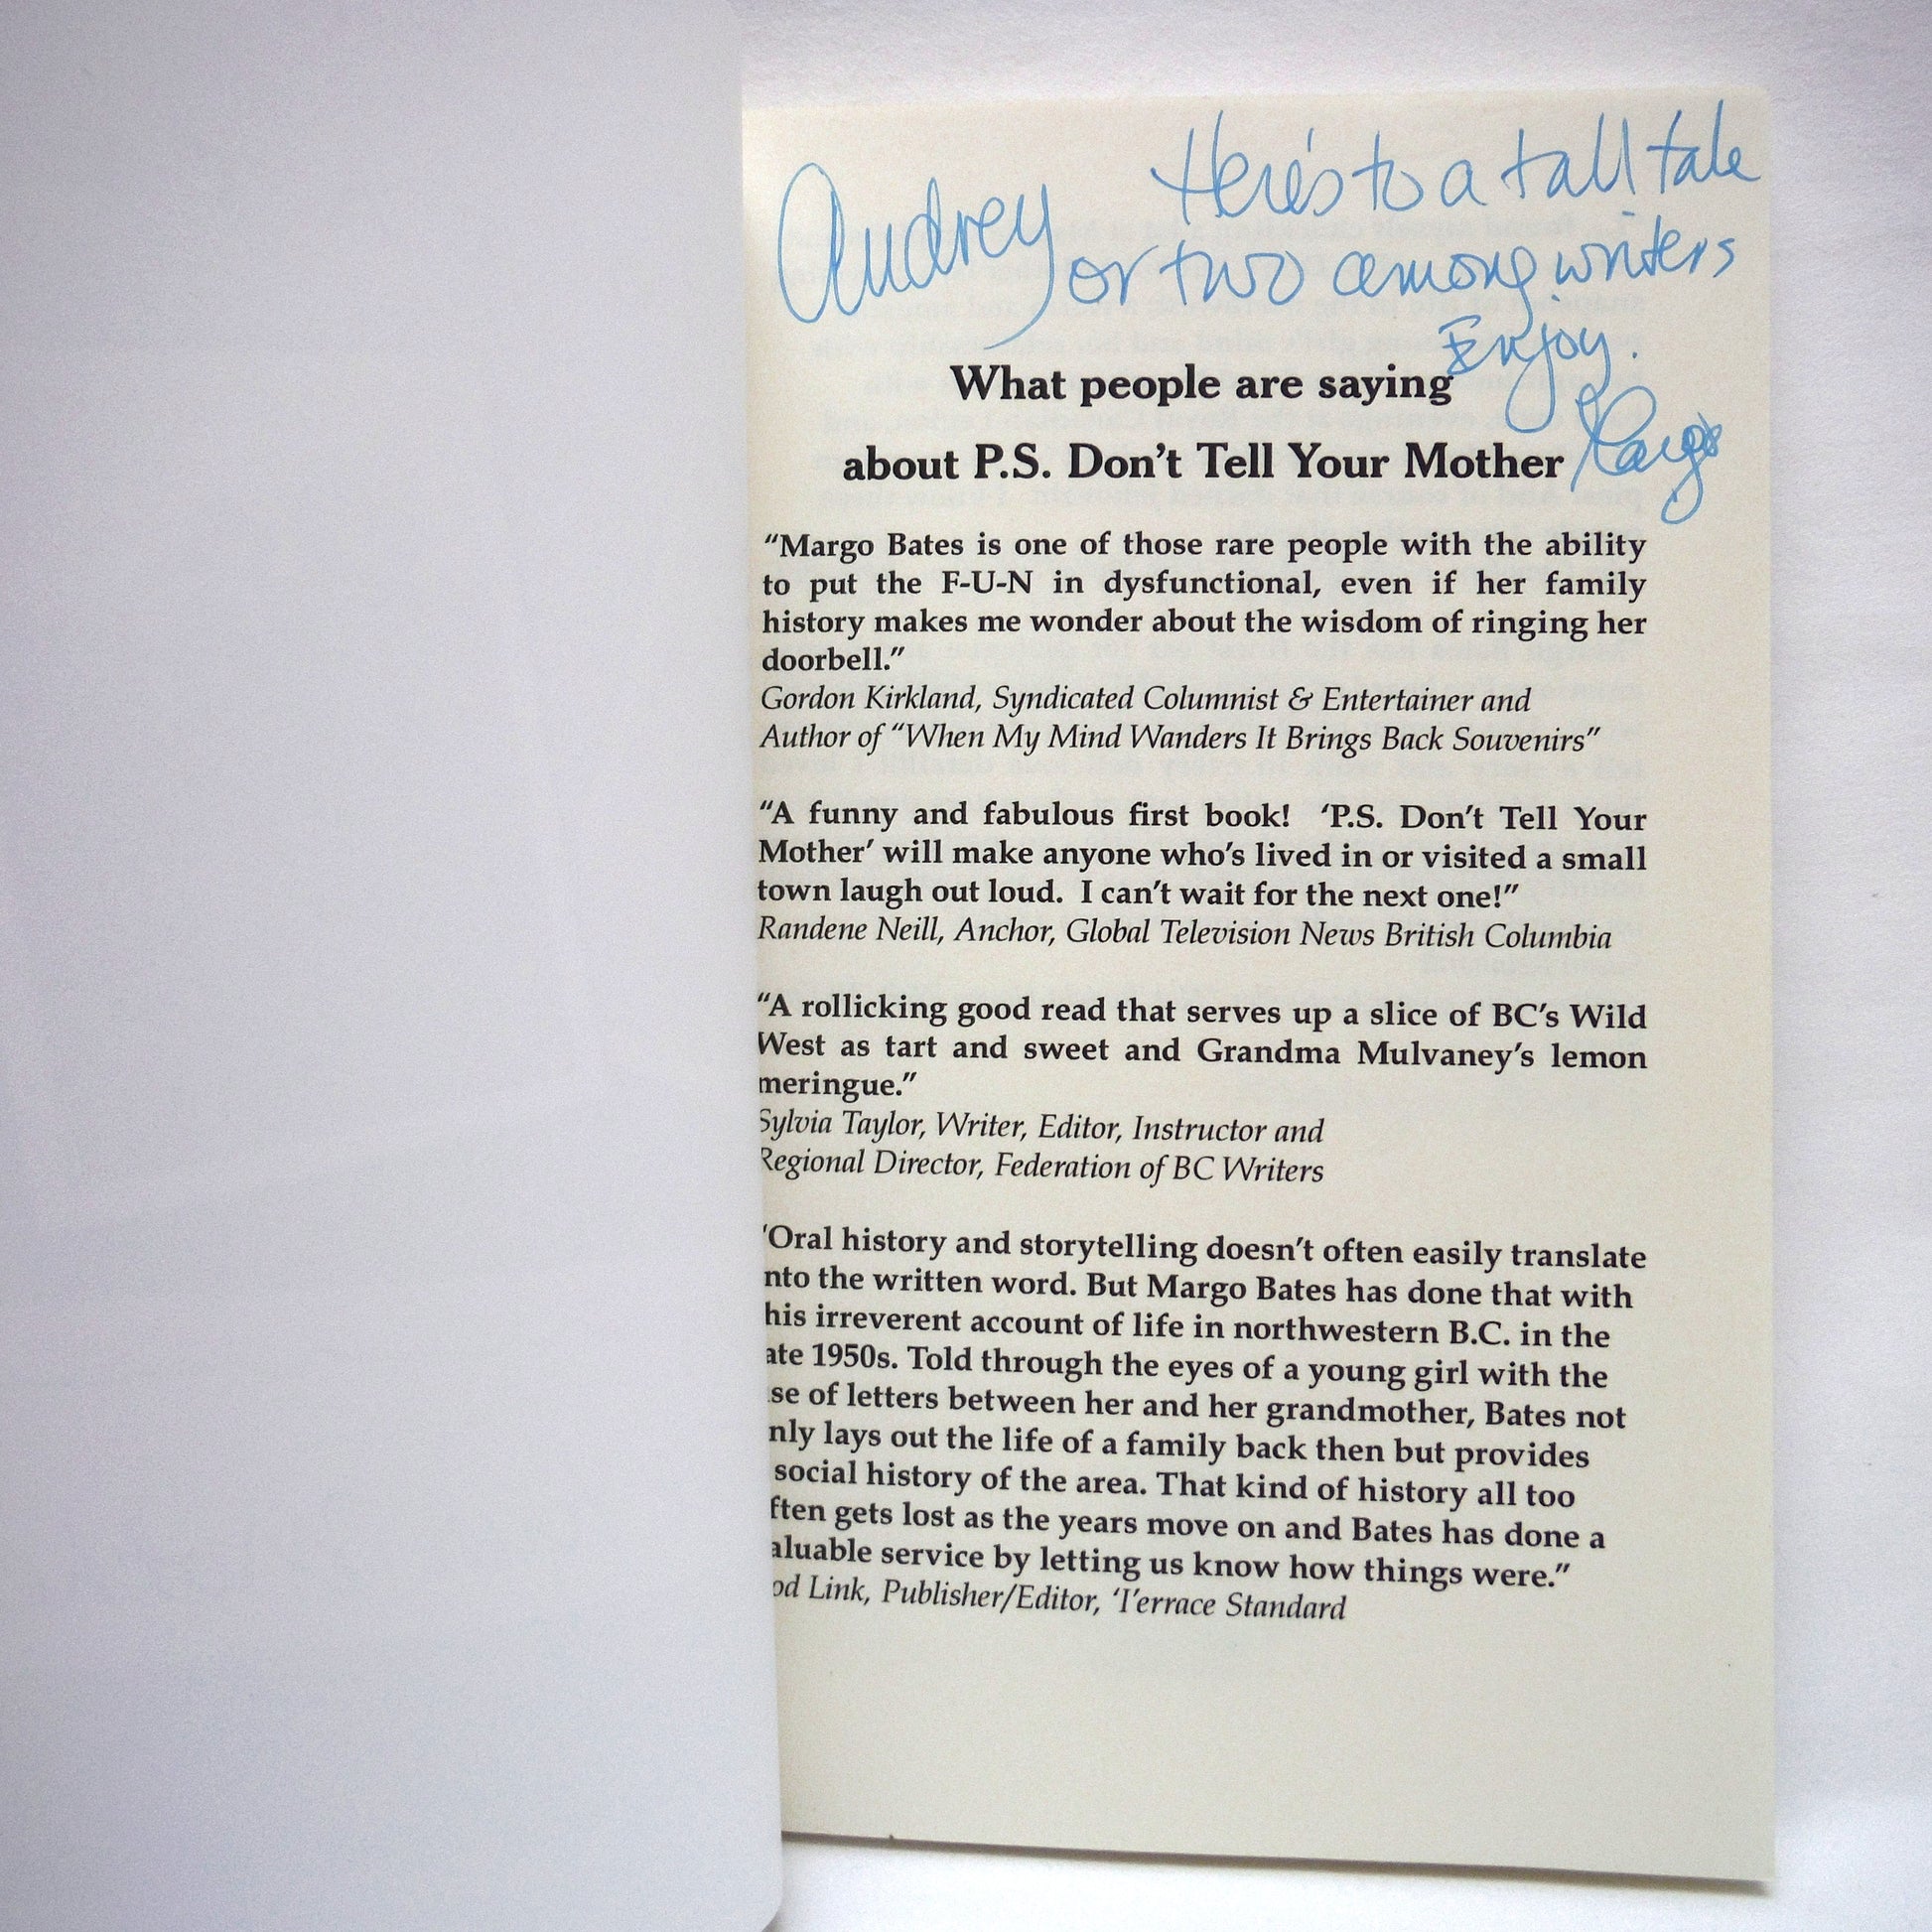 Audrey Here's to a tall tale
or two among writers
Enjoy.
Margo
What people are saying
about P.S. Don't Tell Your Mother
“Margo Bates is one of those rare people with the ability
to put the F-U-N in dysfunctional, even if her family
history makes me wonder about the wisdom of ringing her
doorbell.”
Gordon Kirkland, Syndicated Columnist & Entertainer and
Author of “When My Mind Wanders It Brings Back Souvenirs”
“A funny and fabulous first book! ‘P.S. Don’t Tell Your
Mother’ will make anyone who’s lived in or visited a small
town laugh out loud. I can’t wait for the next one!”
Randene Neill, Anchor, Global Television News British Columbia
“A rollicking good read that serves up a slice of BC’s Wild
West as tart and sweet and Grandma Mulvaney’s lemon
meringue.”
Sylvia Taylor, Writer, Editor, Instructor and
Regional Director, Federation of BC Writers
“Oral history and storytelling doesn’t often easily translate
nto the written word. But Margo Bates has done that with
his irreverent account of life in northwestern B.C. in the
ate 1950s. Told through the eyes of a young girl with the
se of letters between her and her grandmother, Bates not
nly lays out the life of a family back then but provides
social history of the area. That kind of history all too
ften gets lost as the years move on and Bates has done a
aluable service by letting us know how things were.”
od Link, Publisher/Editor, Terrace Standard